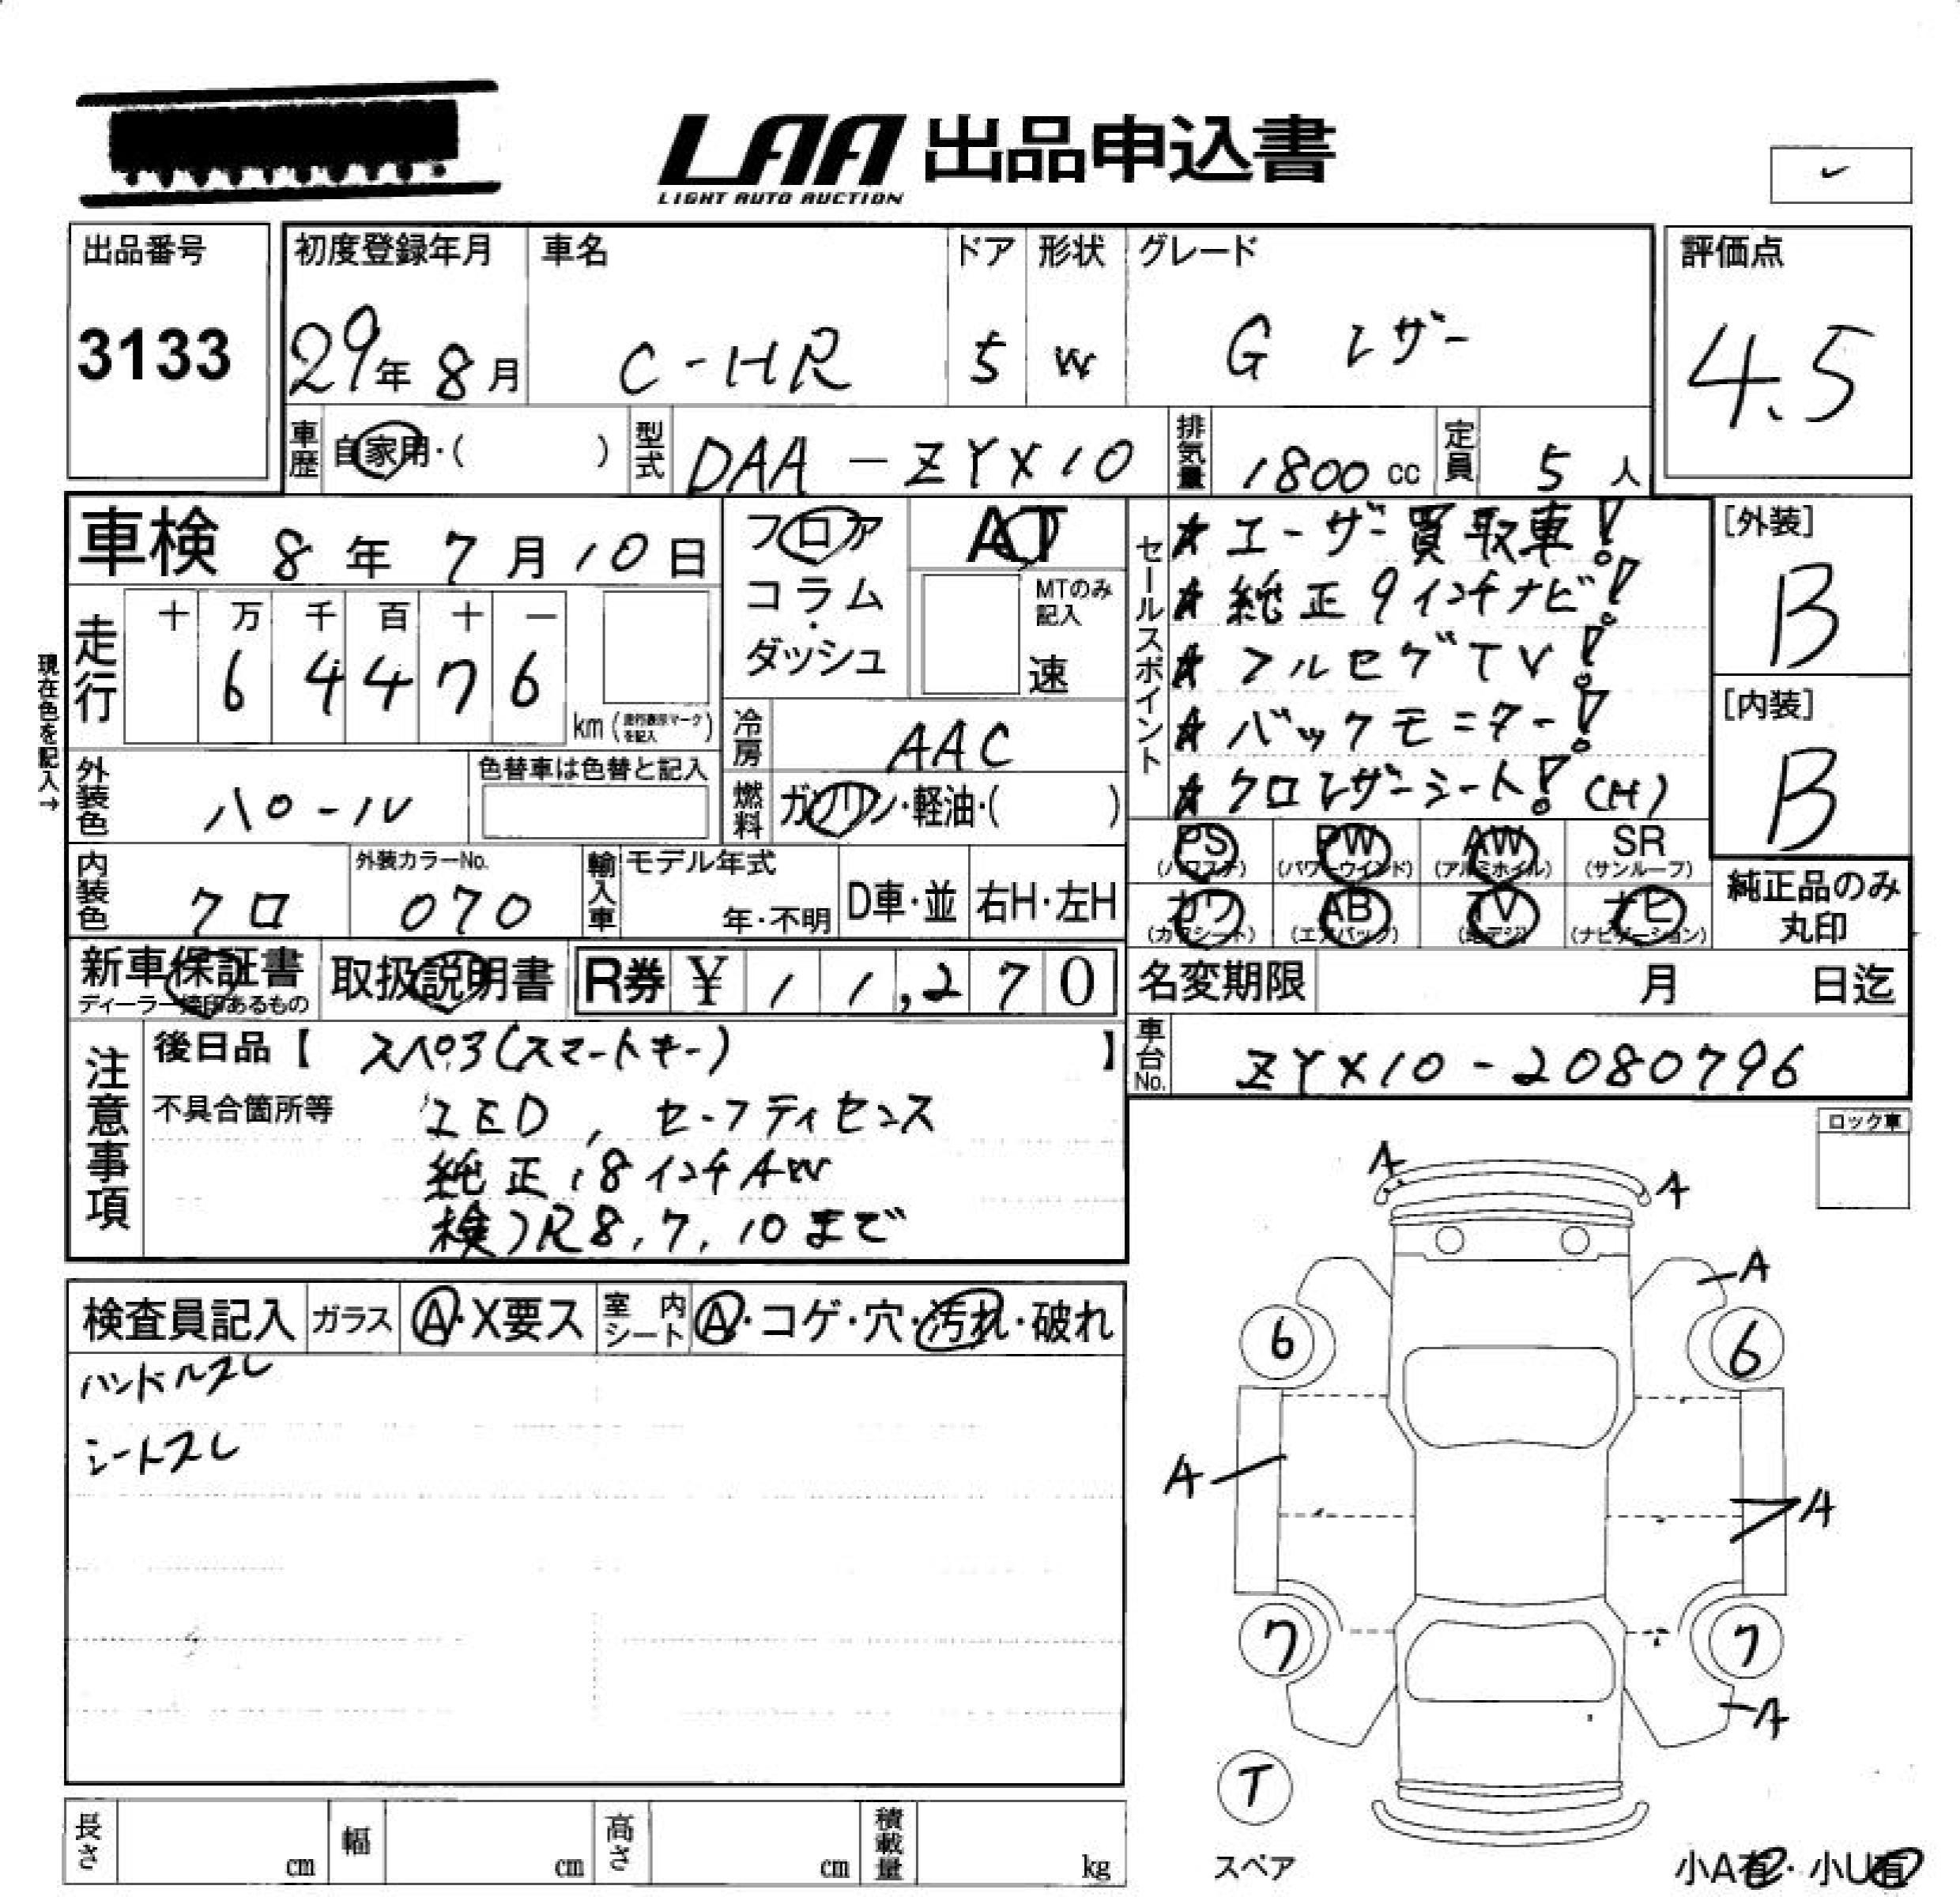 LAA 出品申込書
LIGHT AUTO AUCTION
出品番号
3133
初度登録年月
29年 8月
車名
C-HR
ドア
5
形状
W
グレード
G レザー
評価点
4.5
車歴
自家用・( )
型式
DAA-ZYX10
排気量
1800 cc
定員
5 人
車検 8年 7月 10日
フロア
コラム
・
ダッシュ
AT
MTのみ
記入
速
セールスポイント
★ユーザー買取車!
★純正9インチナビ!
★フルセグTV!
★バックモニター!
★クロレザーシート!(H)
[外装]
B
[内装]
B
現在色を記入→
走行
十 万 千 百 十 一
6 4 4 7 6
km (走行表示マークを記入)
冷房
AAC
外装色
パール
色替車は色替と記入
燃料
ガソリン・軽油・( )
PS
(パワステ)
PW
(パワーウインド)
AW
(アルミホイル)
SR
(サンルーフ)
カワ
(カワシート)
AB
(エアバック)
TV
(地デジ)
ナビ
(ナビゲーション)
純正品のみ
丸印
内装色
クロ
外装カラーNo.
070
輸入車
モデル年式
年・不明
D車・並
右H・左H
新車保証書
ディーラー捺印あるもの
取扱説明書
R券 ¥ 11,270
名変期限 月 日迄
車台No.
ZYX10-2080796
注意事項
後日品【 スペ3(スマートキー) 】
不具合箇所等
LED, セーフティセンス
純正18インチAW
検)R8,7,10まで
ロック車
検査員記入
ガラス
A・X要ス
室内シート
A・コゲ・穴・汚れ・破れ
ハンドルスレ
シートスレ
A
A
A
6
6
A
A
7
7
A
T
スペア
小A有・小U有
長さ cm
幅 cm
高さ cm
積載量 kg